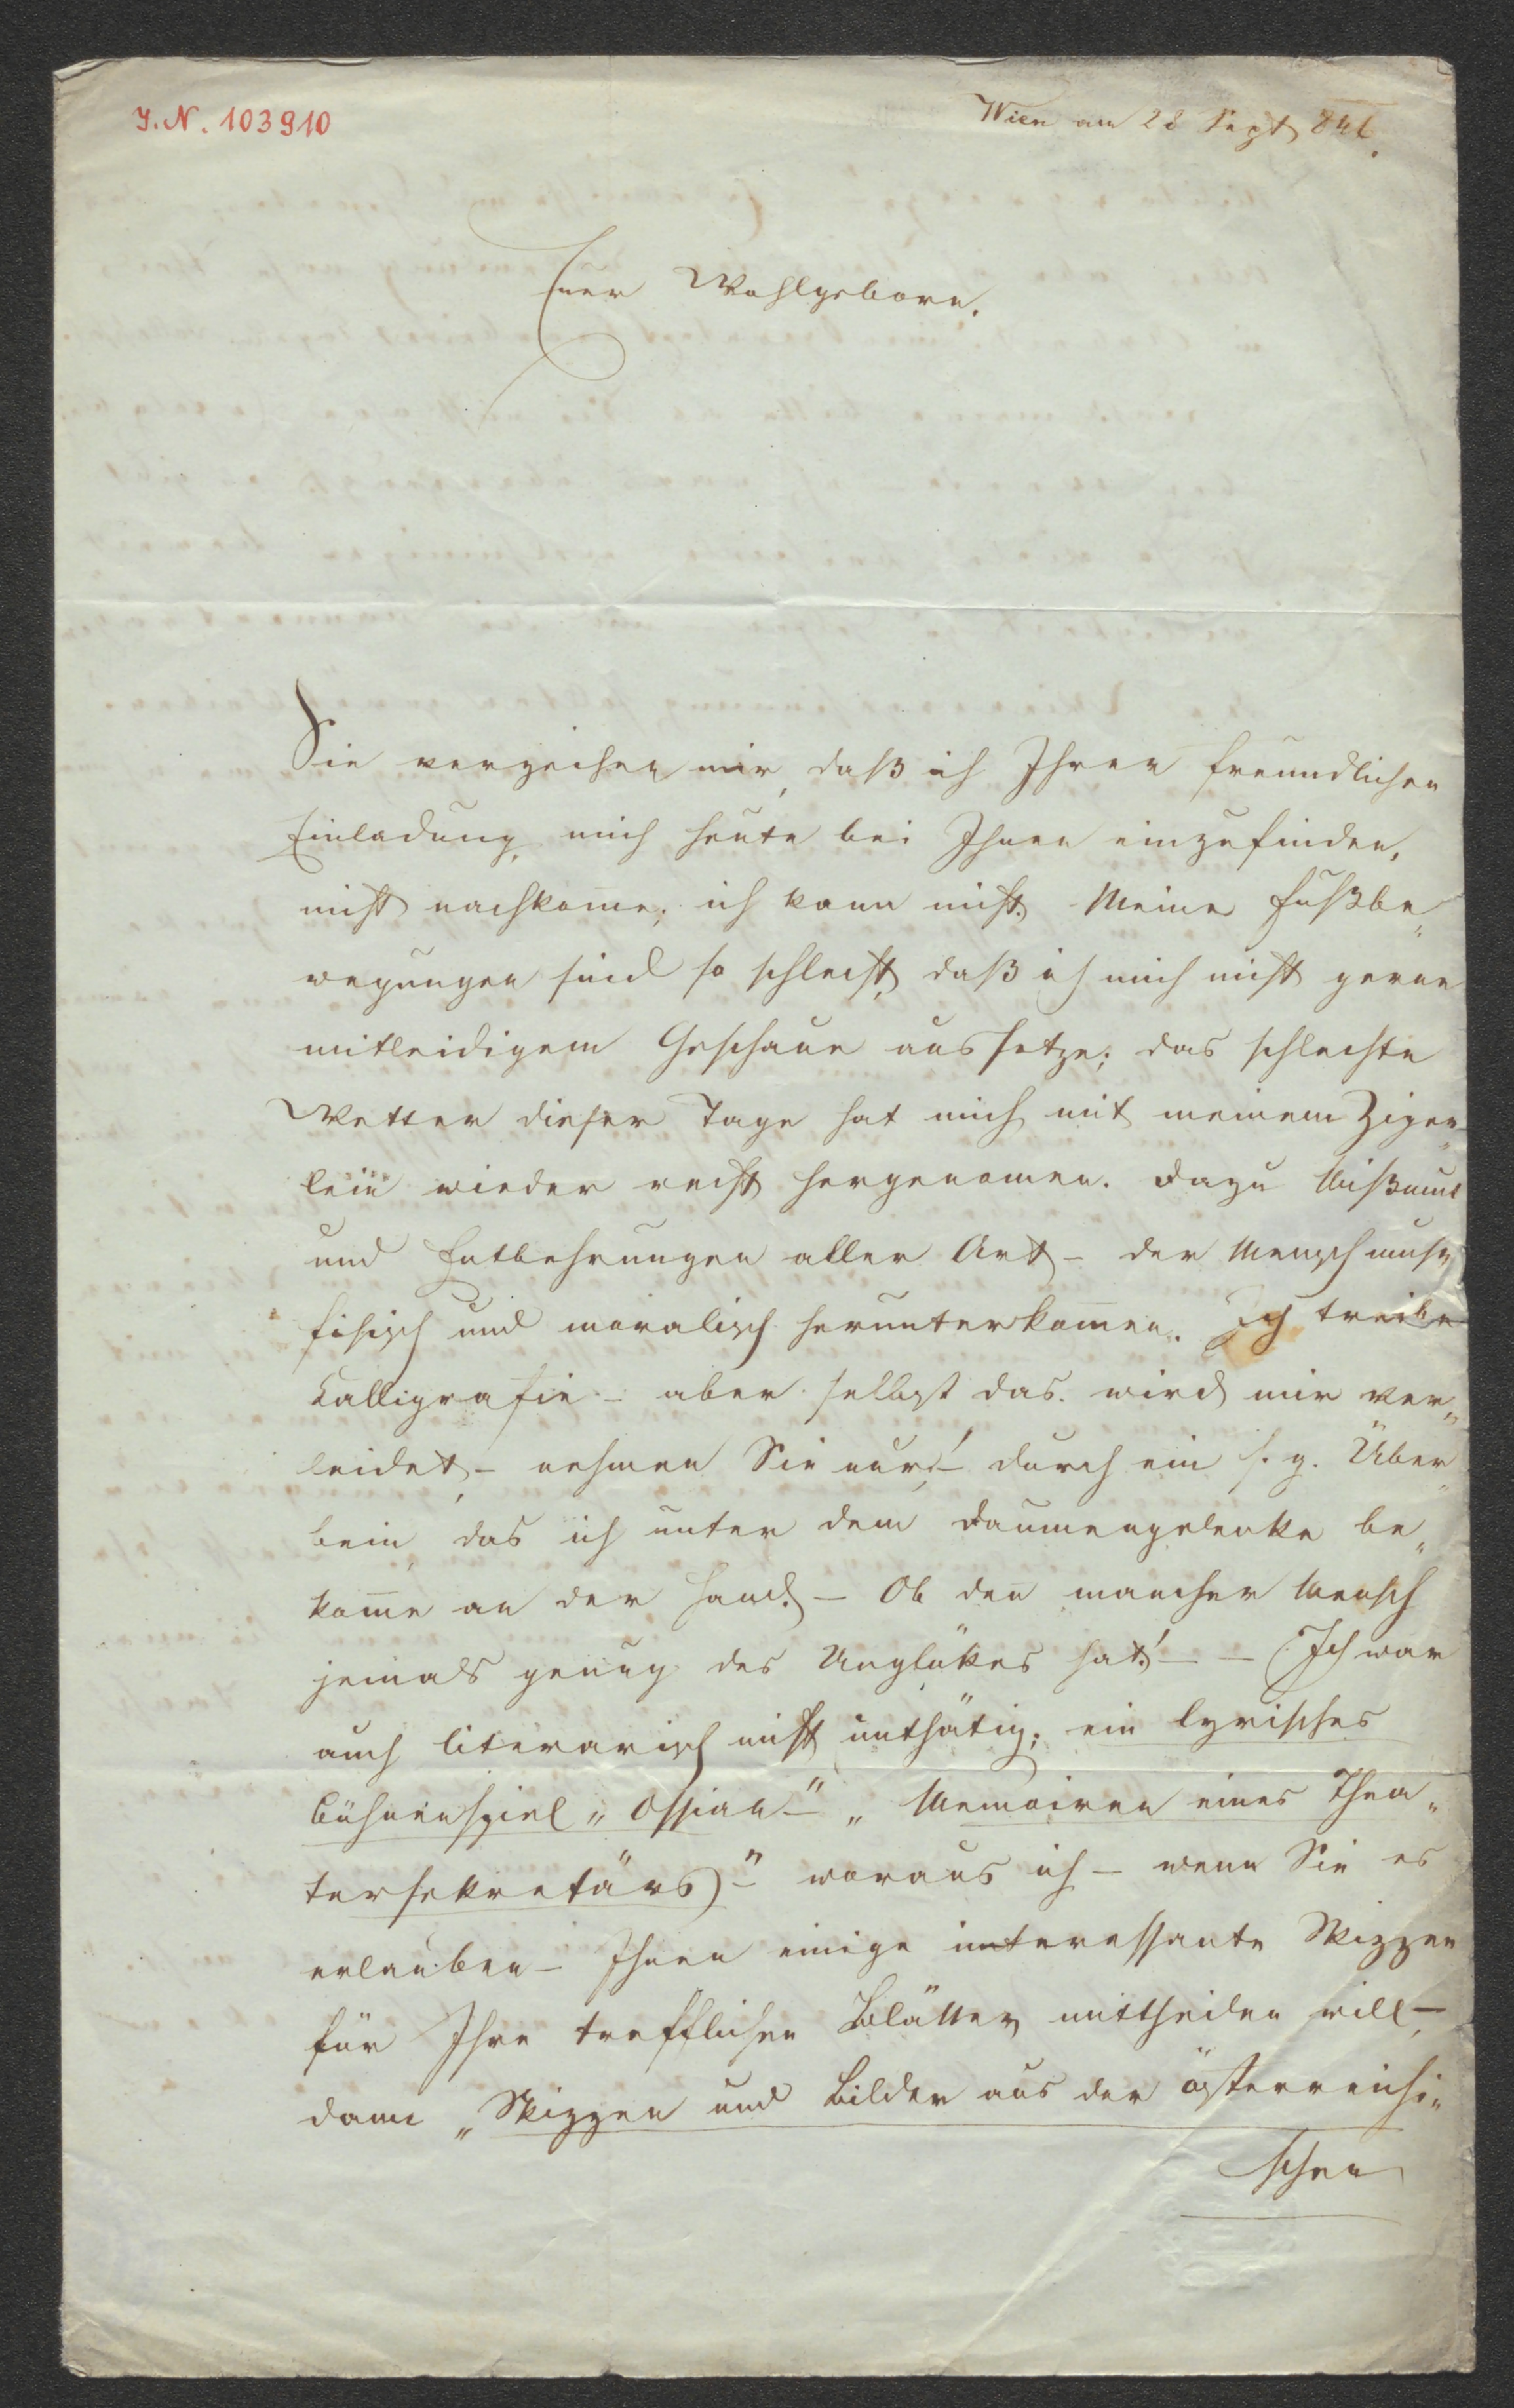 I. N. 103910
Wien am 28 Sept 846.
Euer Wohlgeborn.
Sie verzeihen mir, daß ich Ihrer freundlichen
Einladung, mich heute bei Ihnen einzufinden,
nicht nachkom̄e; ich kann nicht. Meine Fußbe„
wegungen sind so schlecht, daß ich mich nicht gerne
mitleidigem Geschaue aussetze; das schlechte
Wetter dieser Tage hat mich mit meinem
wieder recht hergenom̄en. Dazu Mißmut
und Entbehrungen aller Art – der Mensch muß
fisisch und moralisch herunterkom̄en. Ich treibe
Calligrafie – aber selbst das wird mir ver„
leidet, – nehmen Sie nur! – durch ein s. g. Über„
bein, das ich unter dem Daumengelenke be„
kom̄e an der Hand. – Ob den̄ mancher Mensch
jemals genug des Unglükes hat! – – Ich war
auch literarisch nicht unthätig; ein lyrisches
Bühnenspiel „Ossian –" „Memoiren eines Thea„
tersekretärs" – woraus ich – wenn Sie es
erlauben – Ihnen einige interessante Skizzen
für Ihre trefflichen Blätter mittheilen will –,
dann „Skizzen und Bilder aus der österreichi„
schen